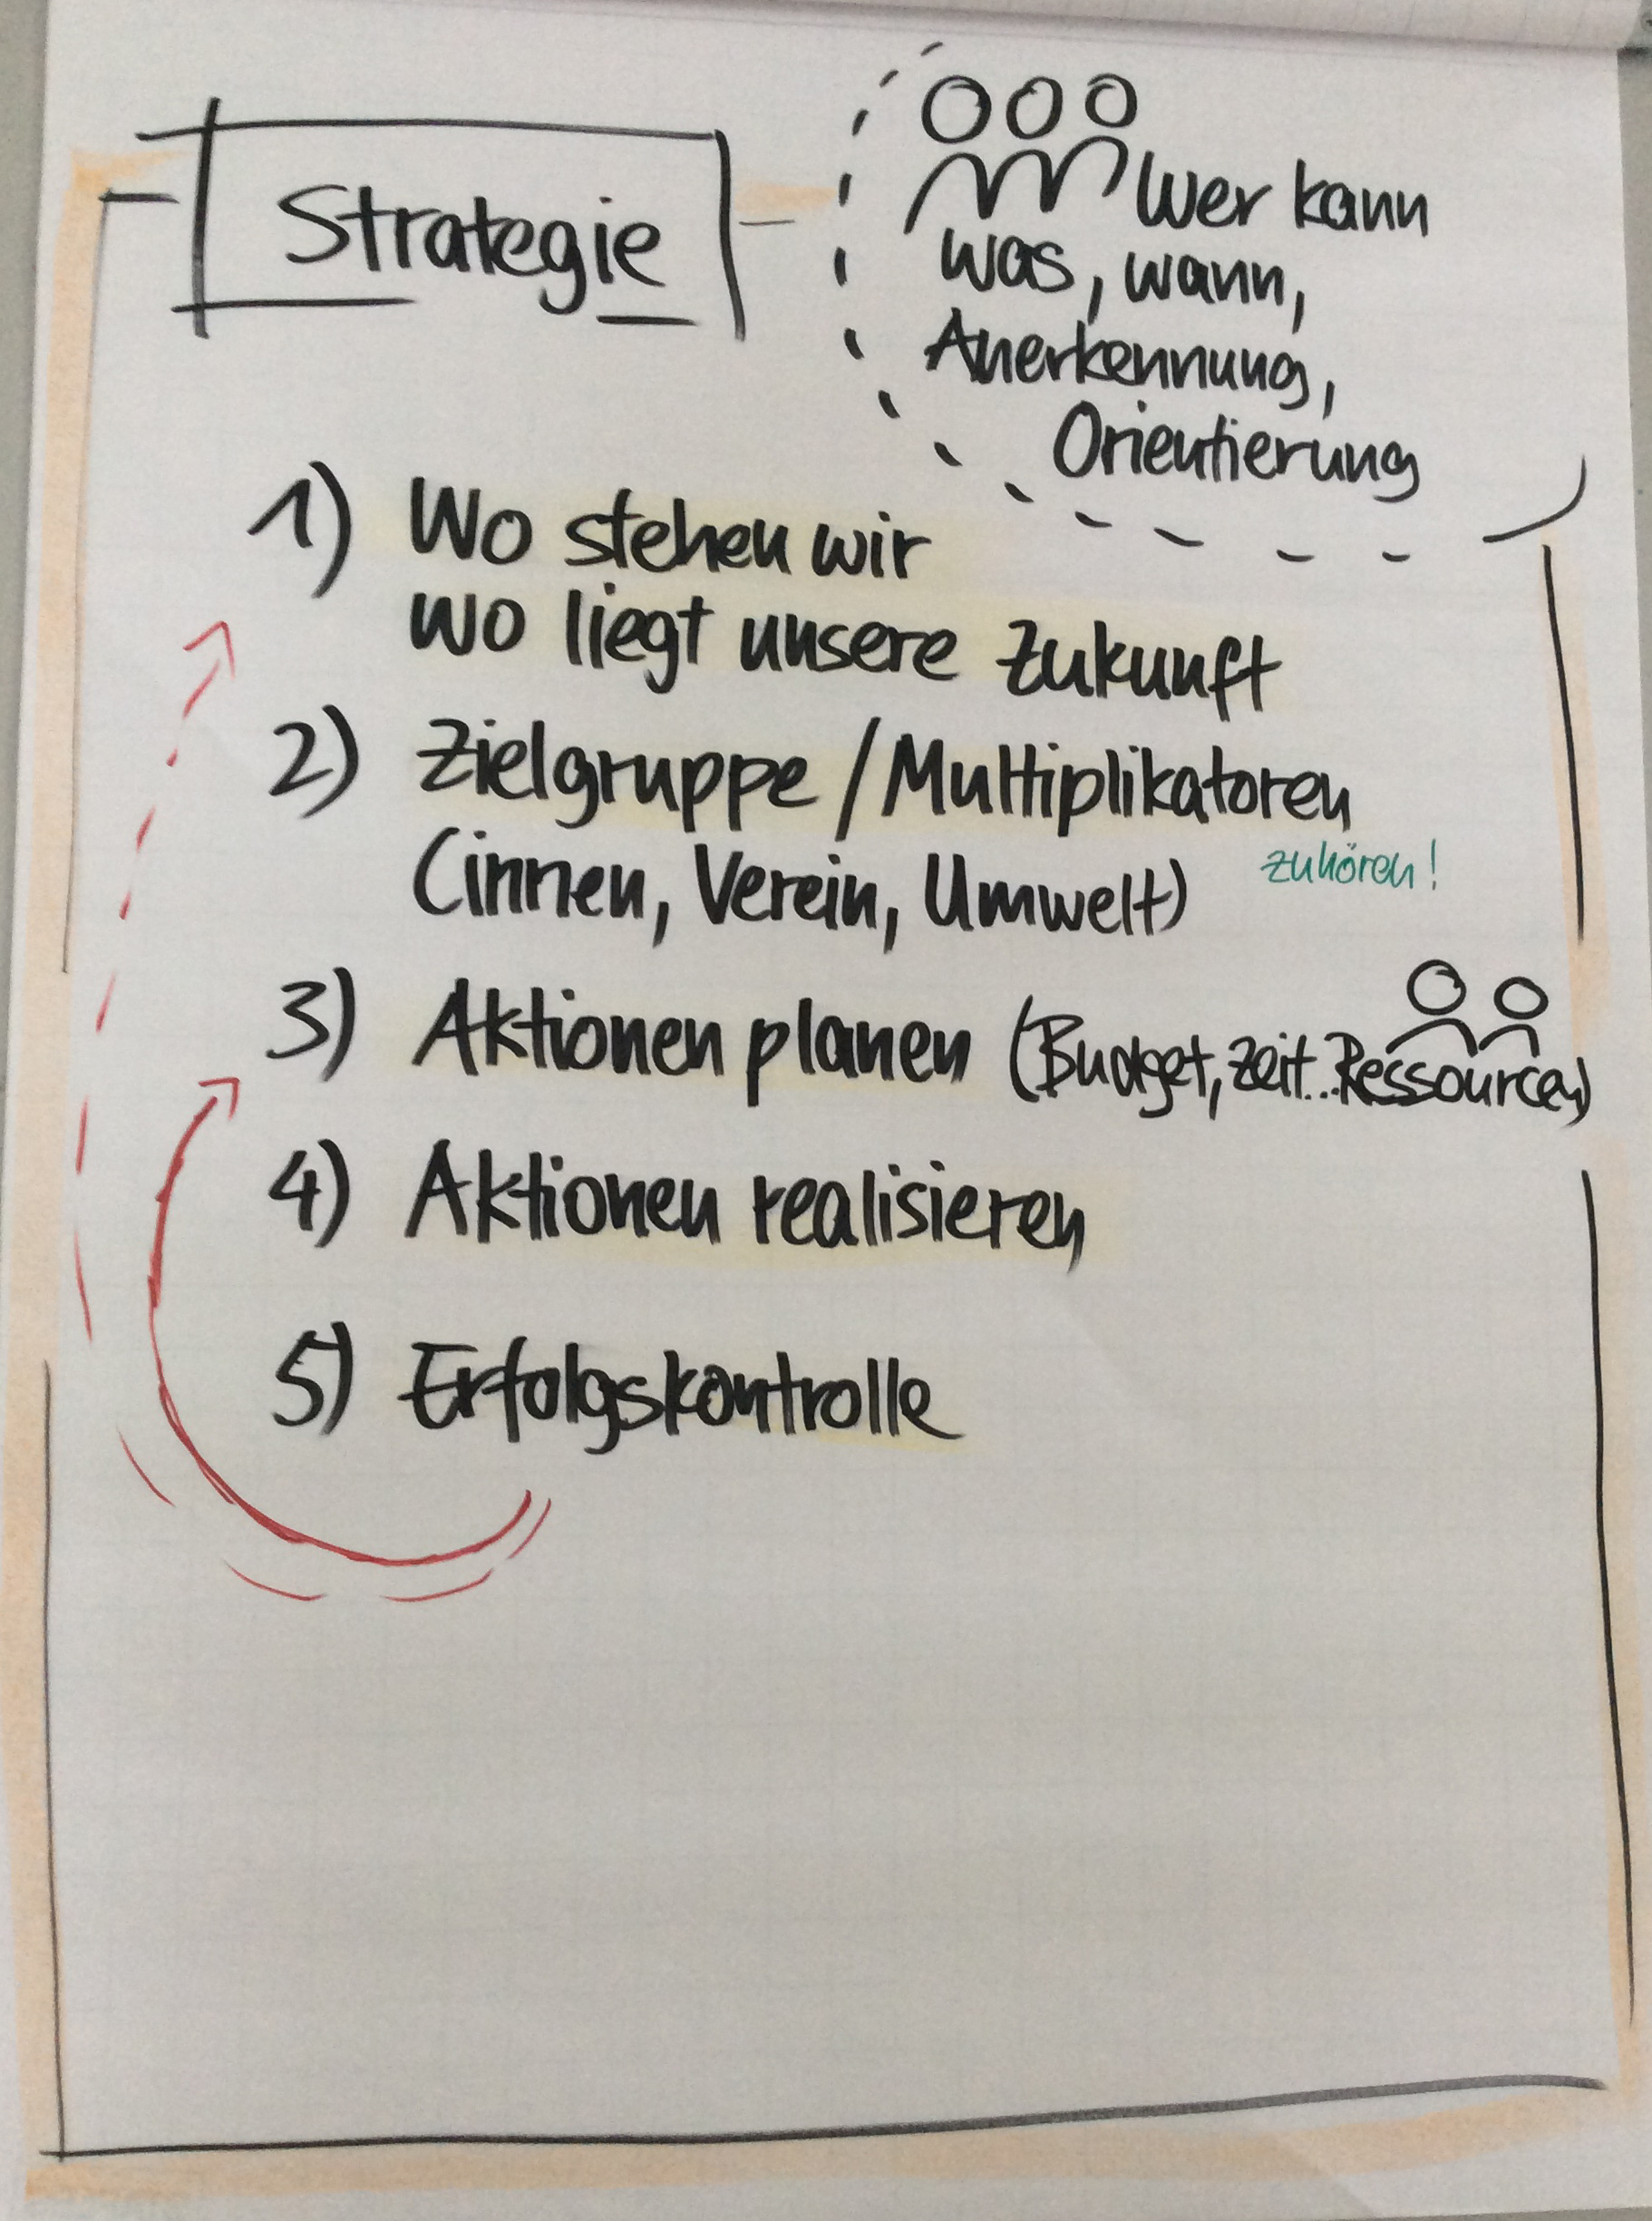 Strategie
Wer kann
was, wann,
Anerkennung,
Orientierung
1) Wo stehen wir
wo liegt unsere Zukunft
2) Zielgruppe / Multiplikatoren
(innen, Verein, Umwelt) zuhören!
3) Aktionen planen (Budget, Zeit... Ressourcen)
4) Aktionen realisieren
5) Erfolgskontrolle